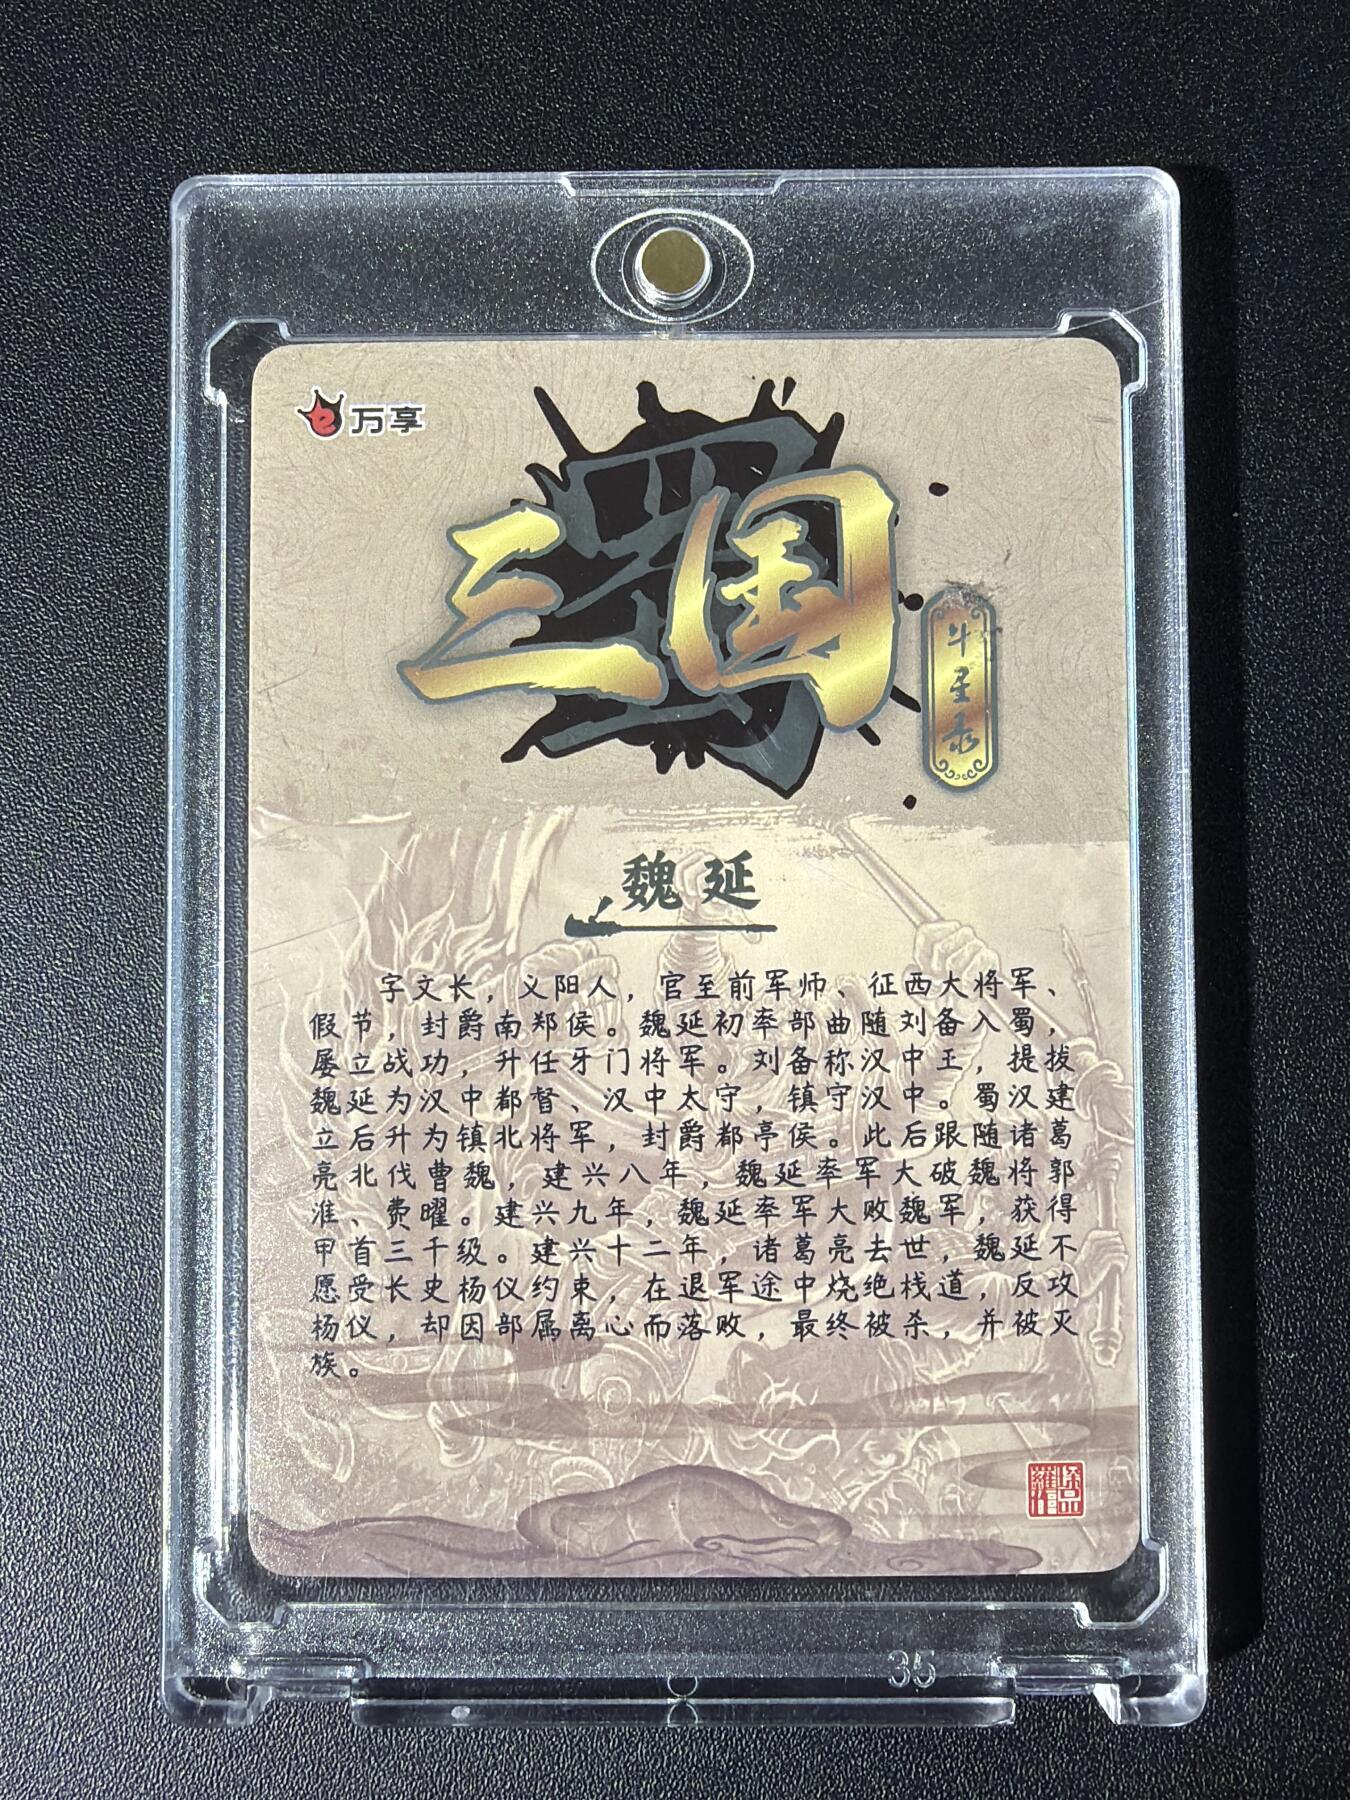 万享
三国
斗星录
魏延
字文长，义阳人，官至前军师、征西大将军、
假节，封爵南郑侯。魏延初率部曲随刘备入蜀，
屡立战功，升任牙门将军。刘备称汉中王，提拔
魏延为汉中都督、汉中太守，镇守汉中。蜀汉建
立后升为镇北将军，封爵都亭侯。此后跟随诸葛
亮北伐曹魏，建兴八年，魏延率军大破魏将郭
淮、费曜。建兴九年，魏延率军大败魏军，获得
甲首三千级。建兴十二年，诸葛亮去世，魏延不
愿受长史杨仪约束，在退军途中烧绝栈道，反攻
杨仪，却因部属离心而落败，最终被杀，并被灭
族。
35